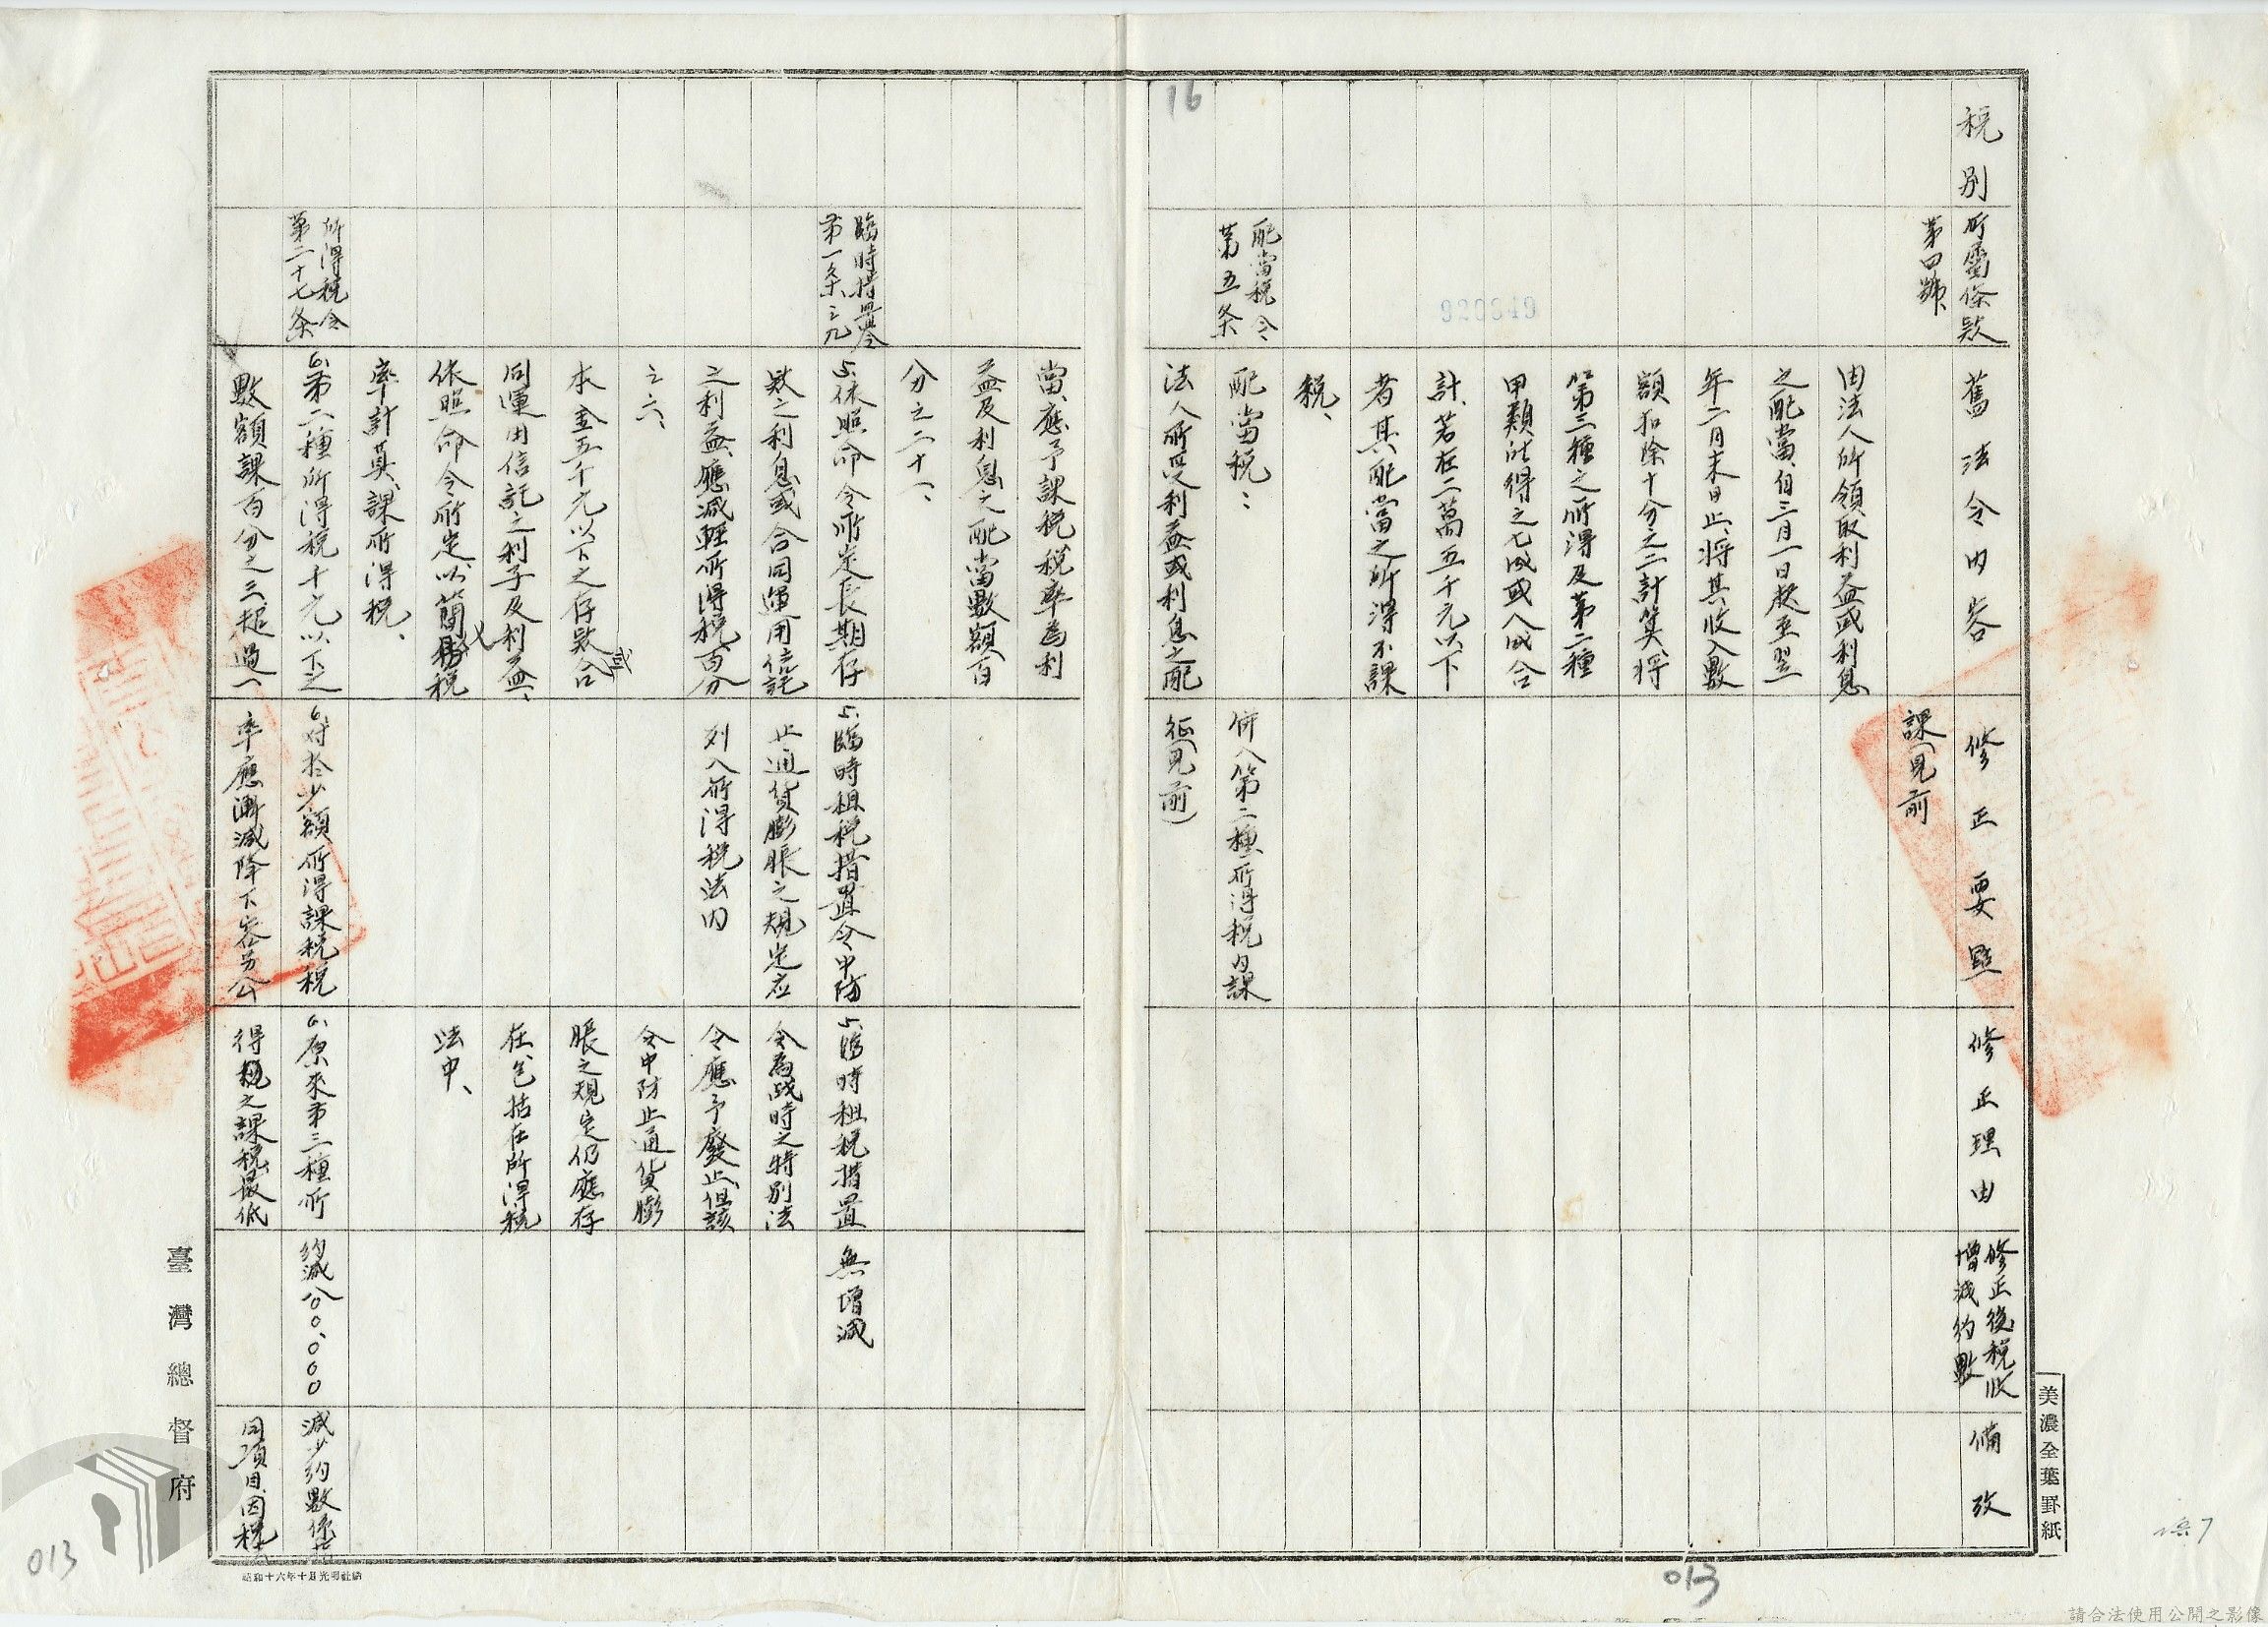 稅別
所屬條款
第四號、
舊法令內容
修正要點
修正理由
修正後稅收
增減約數
備攷
由法人所領取利益或利息
之配當、自三月一日起至翌
年二月末日止、將其收入數
額扣除十分之二計算、將
第三種之所得及第二種
甲類所得之七成或八成合
計、若在二萬五千元以下
者其配當之所得不課
稅、
課(見前
配當稅令
第五条
配當稅：
法人所受利益或利息之配
併入第二種所得稅內課
征(見前)
當、應予課稅稅率為利
益及利息之配當數額百
分之二十一、
臨時措置令
第一条之九
5.依照命令所定長期存
款之利息或合同運用信託
之利益、應減輕所得稅百分
之六、
本金五千元以下之存款或合
同運用信託之利子及利益、
依照命令所定、以簡易稅
率計算、課所得稅、
5.臨時租稅措置令中防
止通貨膨脹之規定应
列入所得稅法內
5.臨時租稅措置
令為战時之特別法
令應予廢止、但該
令中防止通貨膨
脹之規定仍應存
在包括在所得稅
法中、
無增減
所得稅令
第二十七条
6.第二種所得稅十元以下之
數額課百分之三超過一
6.对於少額所得課稅稅
率應漸減降下容另公
6.原來第三種所
得稅之課稅最低
約減八00.000
減少約數係
同項目因稅
臺灣總督府
美濃全葉罫紙
昭和十六年十月光明社納
16
020049
013
013
請合法使用公開之影像